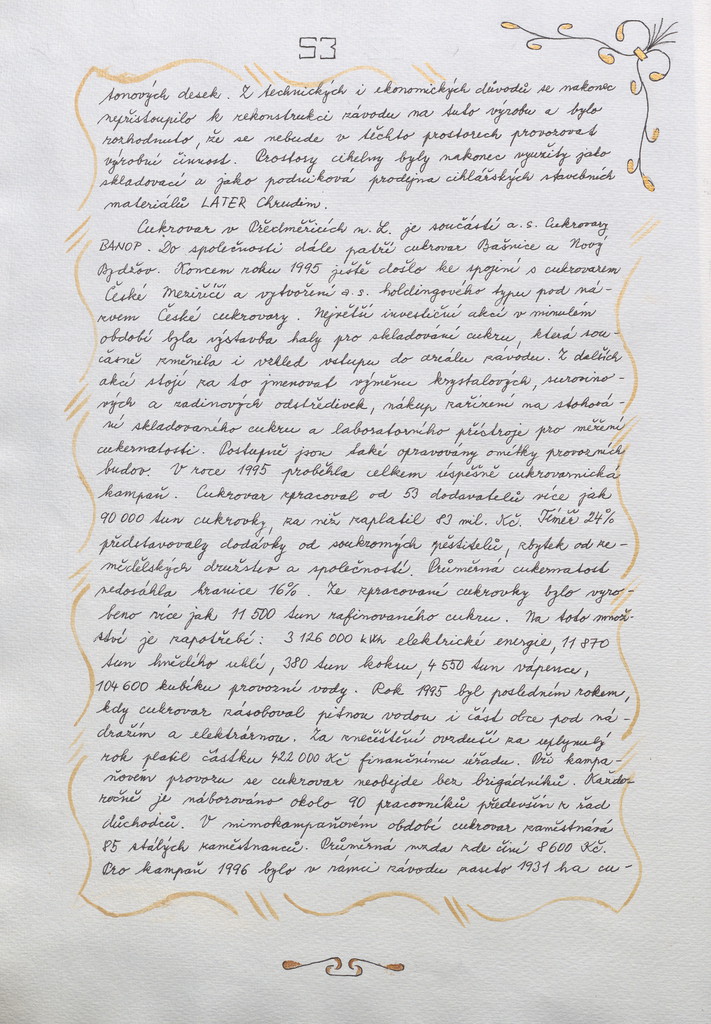 53
tonových desek. Z technických i ekonomických důvodů se nakonec
nepřistoupilo k rekonstrukci závodu na tuto výrobu a bylo
rozhodnuto, že se nebude v těchto prostorech provozovat
výrobní činnost. Prostory cihelny byly nakonec využity jako
skladovací a jako podniková prodejna cihlářských stavebních
materiálů LATER Chrudim.
Cukrovar v Předměřicích n. L. je součástí a. s. Cukrovary
BANOP. Do společnosti dále patří cukrovar Bašnice a Nový
Bydžov. Koncem roku 1995 ještě došlo ke spojení s cukrovarem
České Meziříčí a vytvoření a. s. holdingového typu pod ná-
zvem České cukrovary. Největší investiční akcí v minulém
období byla výstavba haly pro skladování cukru, která sou-
časně změnila i vzhled vstupu do areálu závodu. Z dalších
akcí stojí za to jmenovat výměnu krystalových, surovino-
vých a zadinových odstředivek, nákup zařízení na stohová-
ní skladovaného cukru a laboratorního přístroje pro měření
cukernatosti. Postupně jsou také opravovány omítky provozních
budov. V roce 1995 proběhla celkem úspěšně cukrovarnická
kampaň. Cukrovar zpracoval od 53 dodavatelů více jak
90 000 tun cukrovky, za niž zaplatil 83 mil. Kč. Téměř 24%
představovaly dodávky od soukromých pěstitelů, zbytek od ze-
mědělských družstev a společností. Průměrná cukernatost
nedosáhla hranice 16%. Ze zpracované cukrovky bylo vyro-
beno více jak 11 500 tun rafinovaného cukru. Na toto množ-
ství je zapotřebí: 3 126 000 kWh elektrické energie, 11 870
tun hnědého uhlí, 380 tun koksu, 4 550 tun vápence,
104 600 kubíku provozní vody. Rok 1995 byl posledním rokem,
kdy cukrovar zásoboval pitnou vodou i část obce pod ná-
dražím a elektrárnou. Za znečištění ovzduší za uplynulý
rok platil částku 422 000 Kč finančnímu úřadu. Při kampa-
ňovém provozu se cukrovar neobejde bez brigádníků. Každo-
ročně je náborováno okolo 90 pracovníků především z řad
důchodců. V mimokampaňovém období cukrovar zaměstnává
85 stálých zaměstnanců. Průměrná mzda zde činí 8 600 Kč.
Pro kampaň 1996 bylo v rámci závodu zaseto 1931 ha cu-